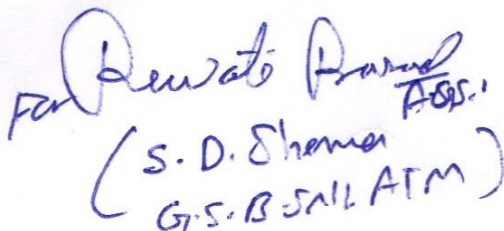 For Rewati Prasad
AGS.
(S. D. Sharma
G.S. BSNL ATM)